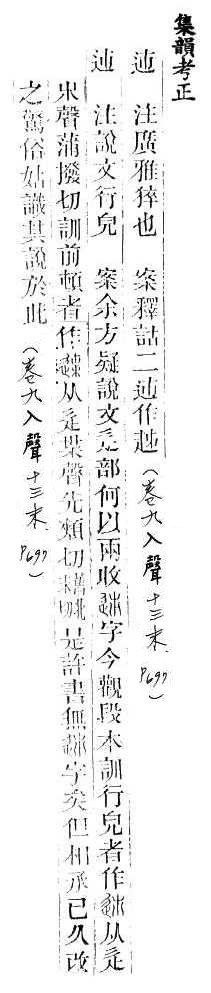 集韻考正
迪 注廣雅猝也 案釋詁二迪作䞟(卷九入聲十三末 P697)
迪 注說文行皃 案余方疑說文辵部何以兩收䢌字今觀段本訓行皃者作䢌从辵
𣎵聲蒲撥切訓前頓者作从辵枼聲先頰切 是許書無字矣但相承已久改
之驚俗姑識其說於此(卷九入聲十三末 P697)